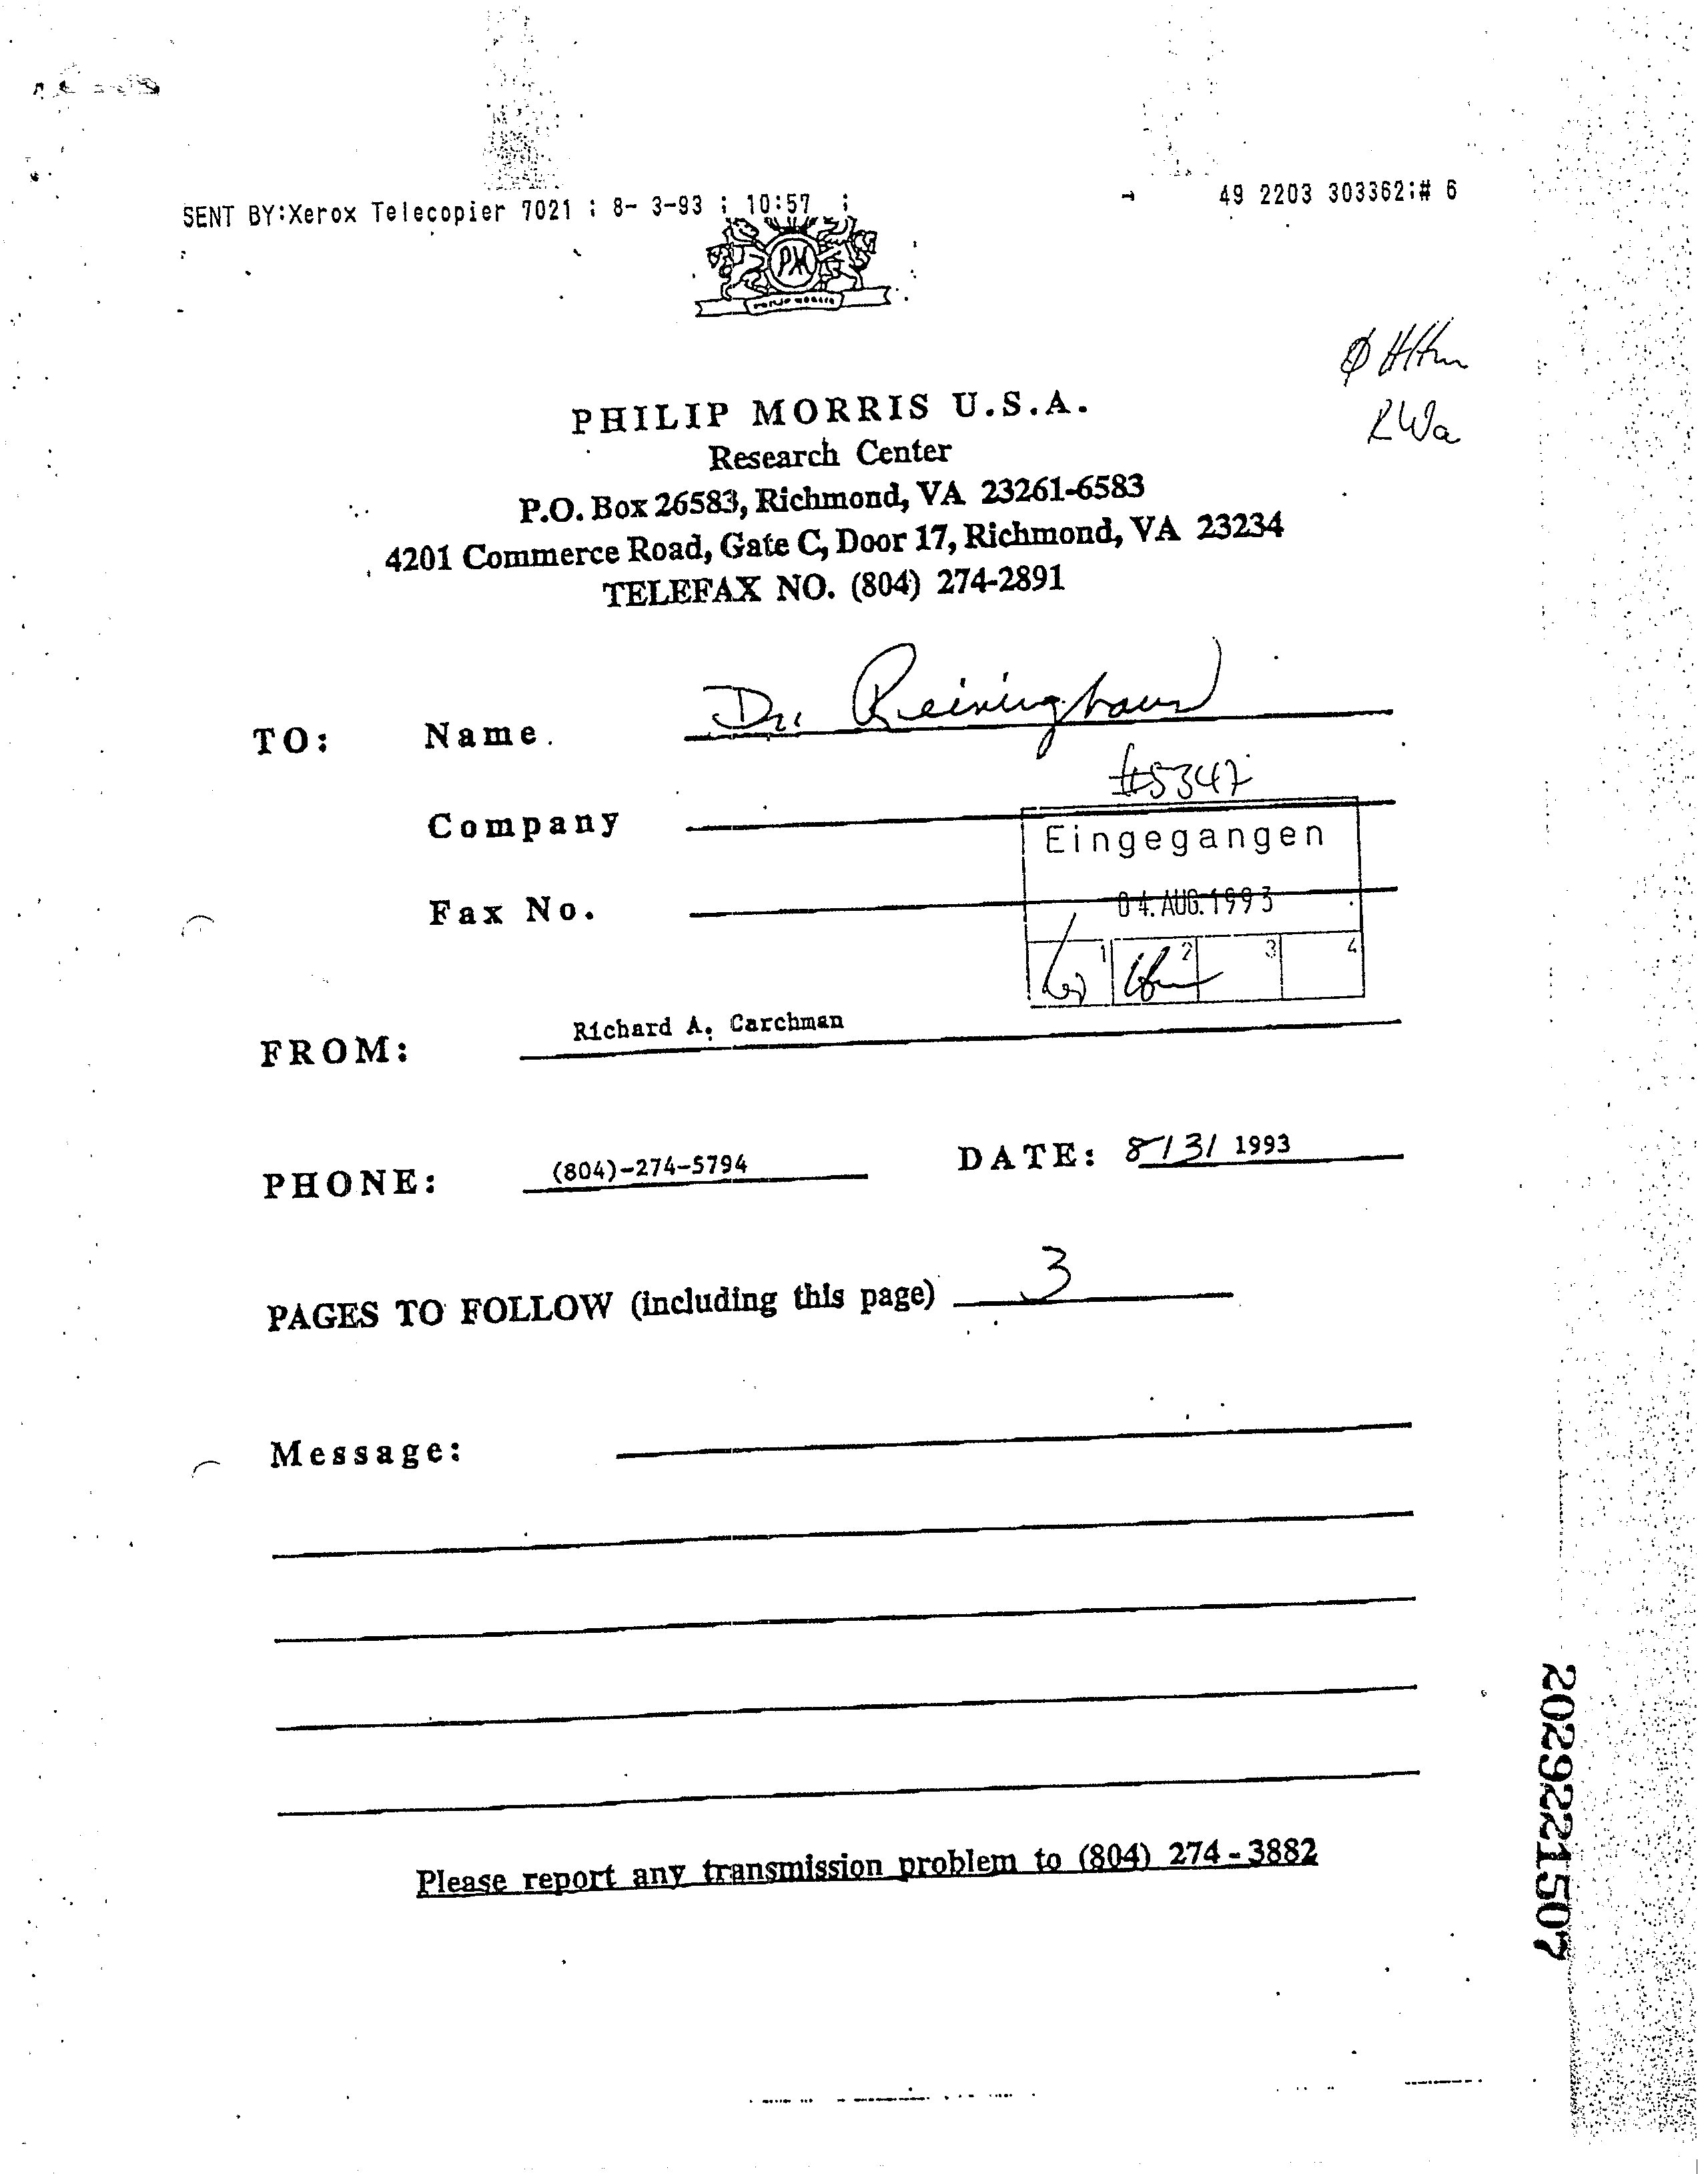 SENT BY:Xerox Telecopier 7021 ; 8- 3-93 ; 10:57 ; → 49 2203 303362;# 6
PM
PHILIP MORRIS
PHILIP MORRIS U.S.A.
RWa
Research Center
P.O. Box 26583, Richmond, VA 23261-6583
4201 Commerce Road, Gate C, Door 17, Richmond, VA 23234
TELEFAX NO. (804) 274-2891
TO: Name. Dr. Reininghaus
#5347
Company
Eingegangen
Fax No.
04. AUG. 1993
1 2 3 4
FROM: Richard A. Carchman
PHONE: (804)-274-5794 DATE: 8/3/ 1993
PAGES TO FOLLOW (including this page) 3
Message:
Please report any transmission problem to (804) 274-3882
2029221507